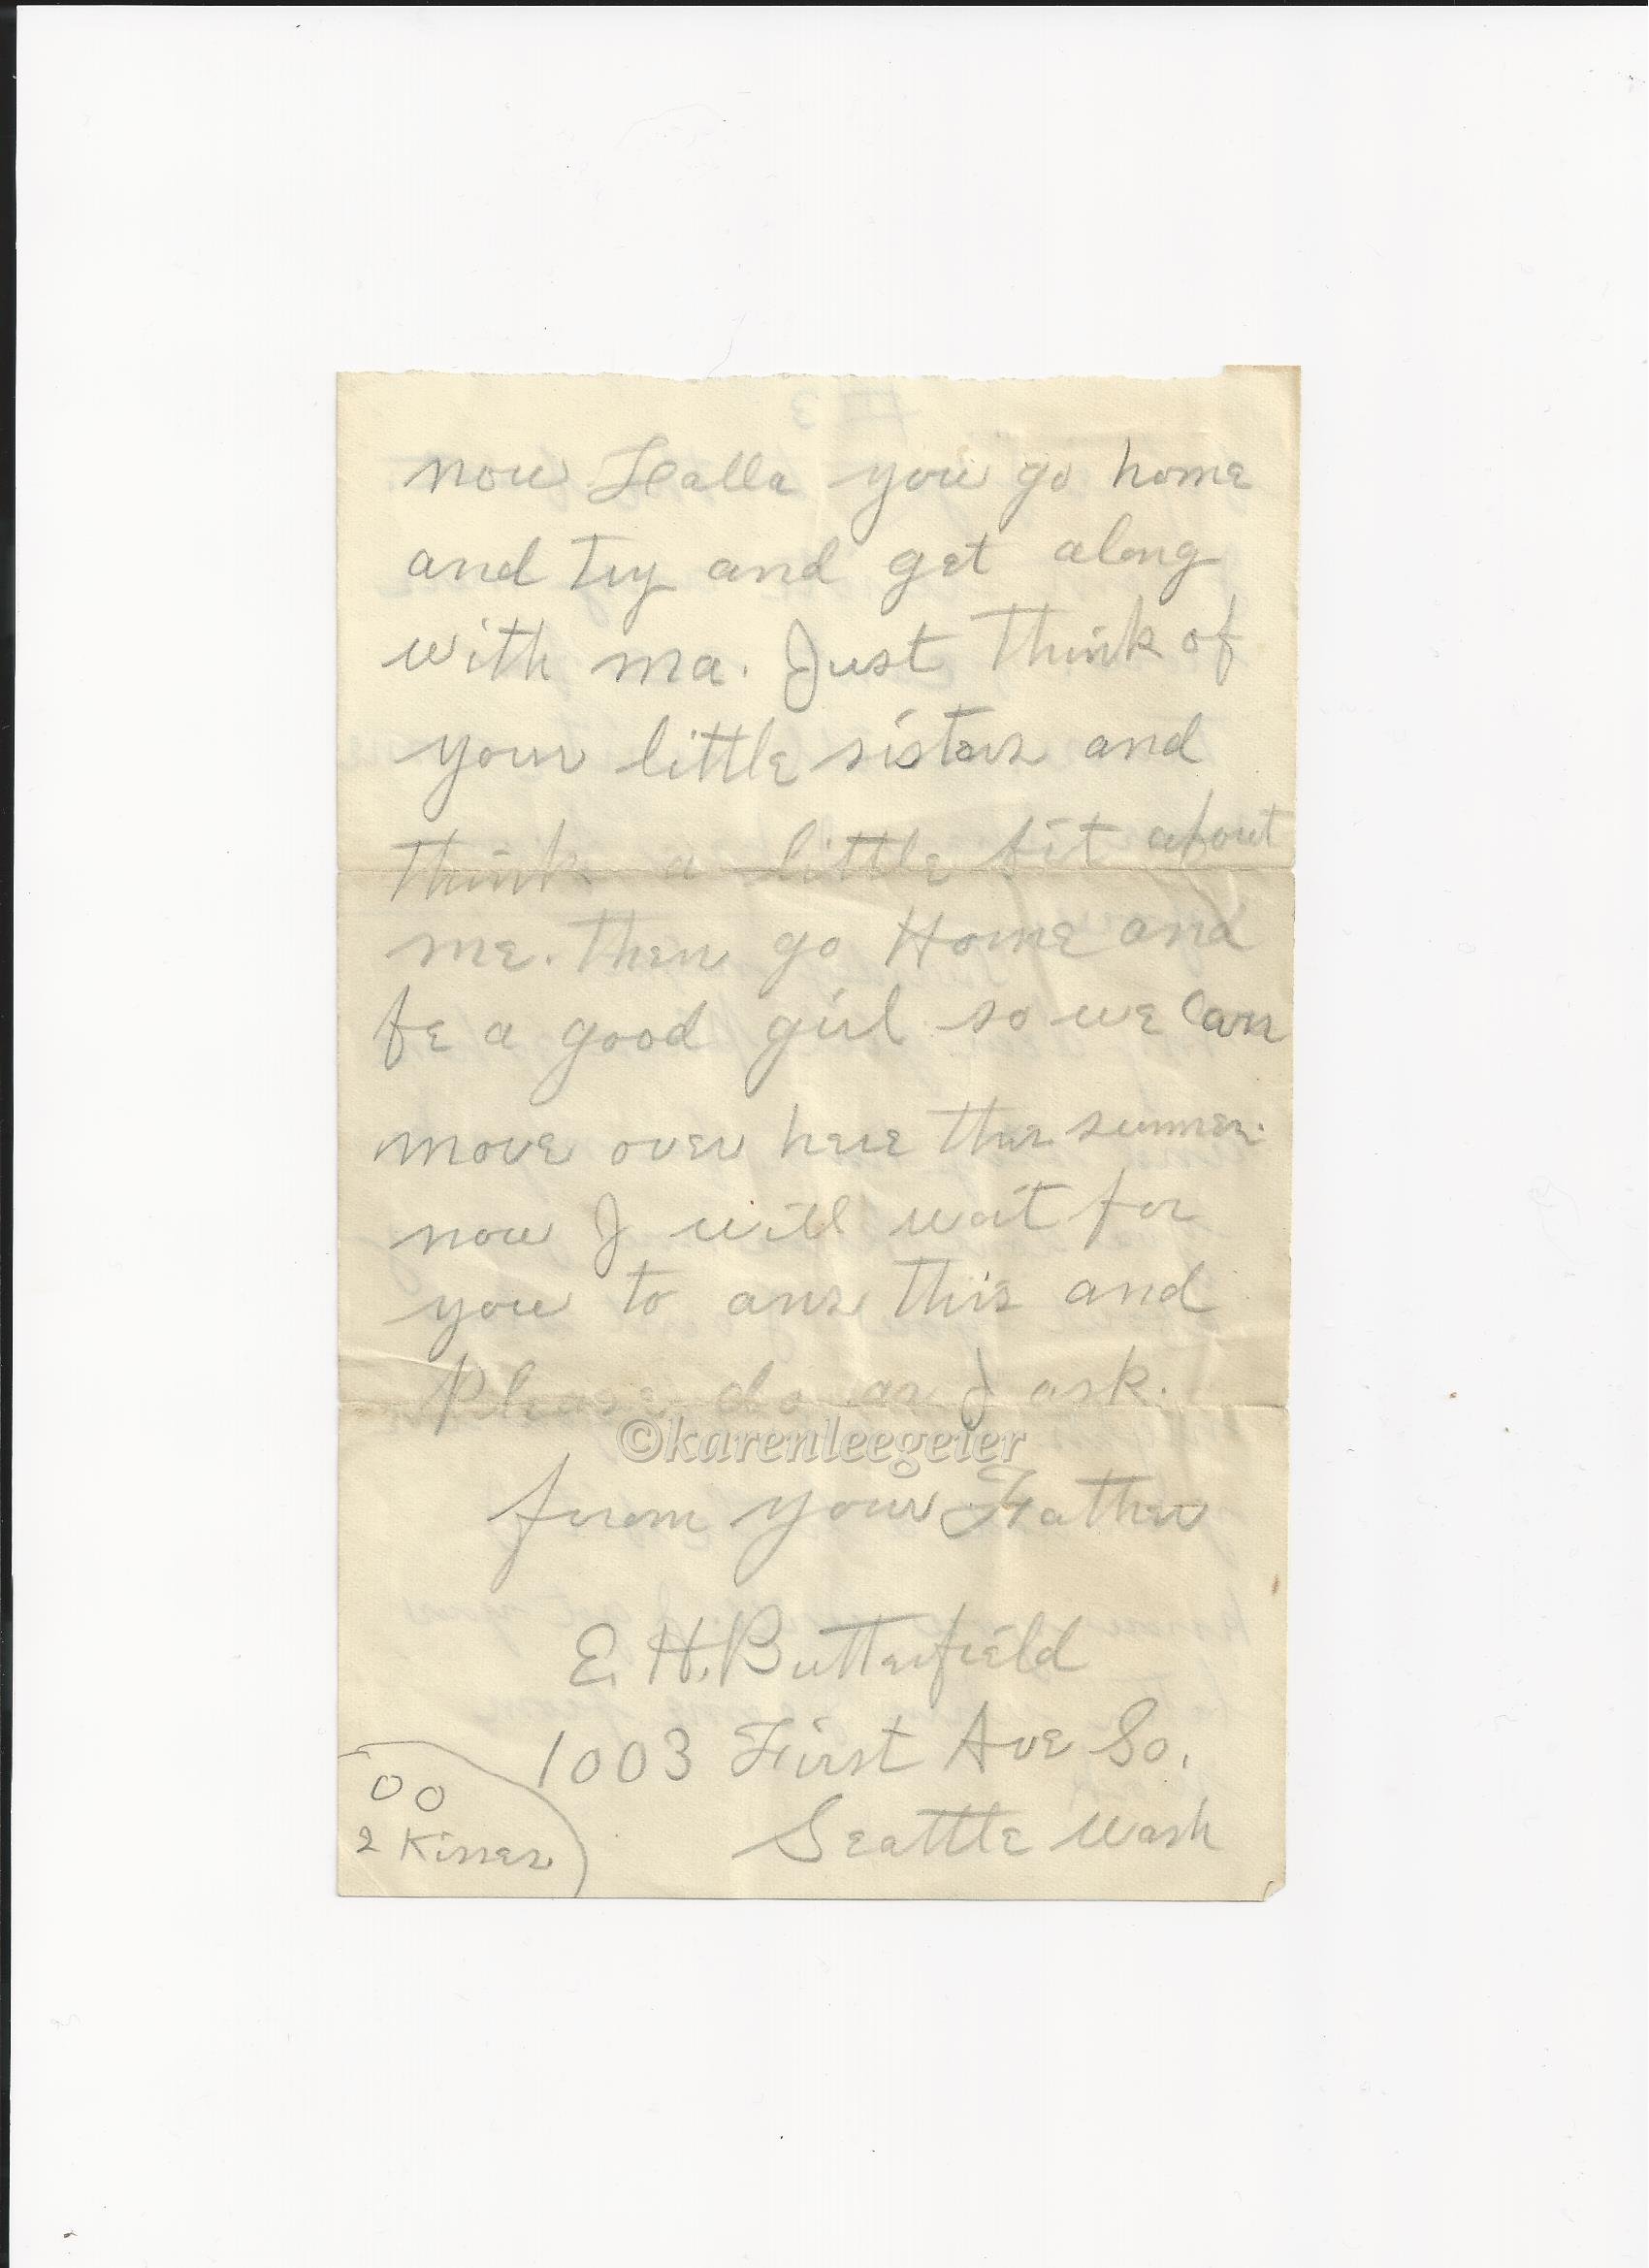 now Lealla you go home
and try and get along
with ma. Just think of
your little sisters and
think a little bit about
me. then go Home and
be a good girl so we can
move over here this summer.
now I will wait for
you to ans this and
Please do as I ask.
©karenleegeier
from your Father
E. H. Butterfield
1003 First Ave So.
Seattle Wash
00
2 Kisses